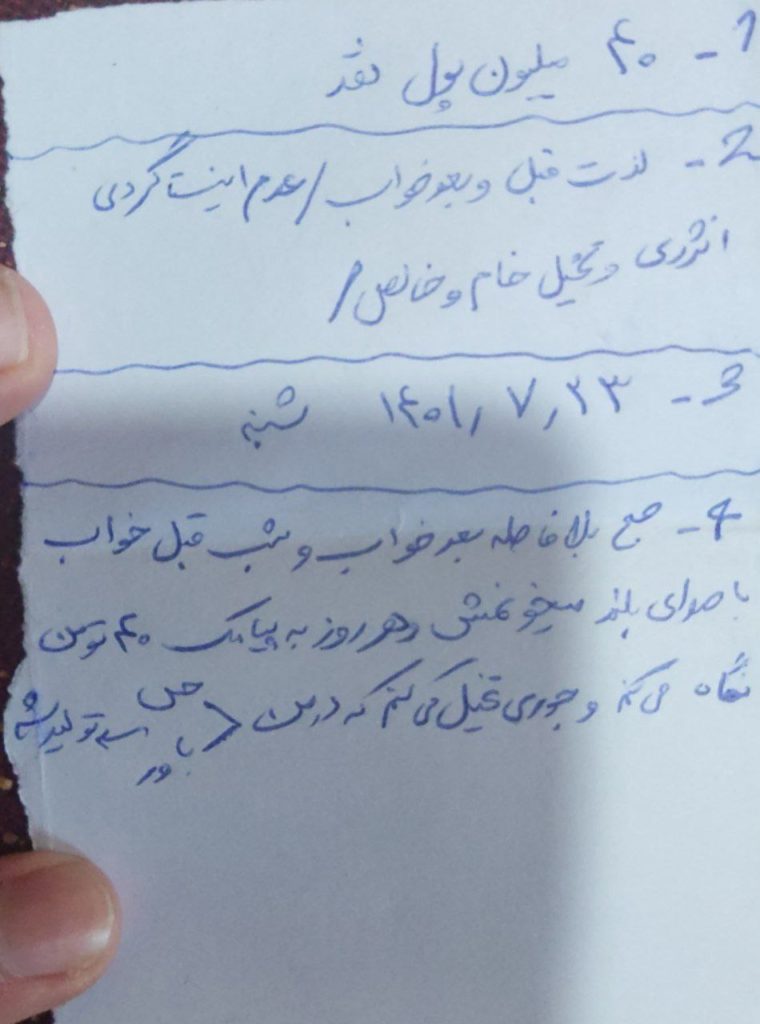 1- ۴۰ میلیون پول نقد
2- لذت قبل و بعد خواب / عدم اینستاگردی
انرژی و تخیل خام و خالص /
3- ۱۴۰۱٫۷٫۲۳ شنبه
4- صبح بلافاصله بعد خواب و شب قبل خواب
با صدای بلند میخونمش و هر روز به پیامک ۴۰ تومن
نگاه می کنم و جوری تخیل می کنم که در من < حس باور تولید شه